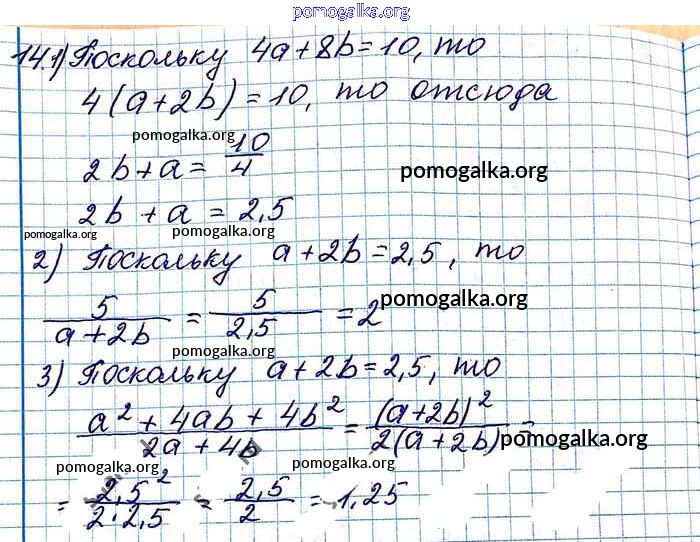 pomogalka.org
14.1) Поскольку 4a+8b=10, то
4(a+2b)=10, то отсюда
pomogalka.org
2b+a= 10/4
pomogalka.org
2b+a=2,5
pomogalka.org pomogalka.org
2) Поскольку a+2b=2,5, то
5/(a+2b) = 5/2,5 =2
pomogalka.org
pomogalka.org
3) Поскольку a+2b=2,5, то
(a²+4ab+4b²)/(2a+4b) = (a+2b)²/2(a+2b) =
pomogalka.org
pomogalka.org pomogalka.org
= 2,5²/2·2,5 = 2,5/2 =1,25